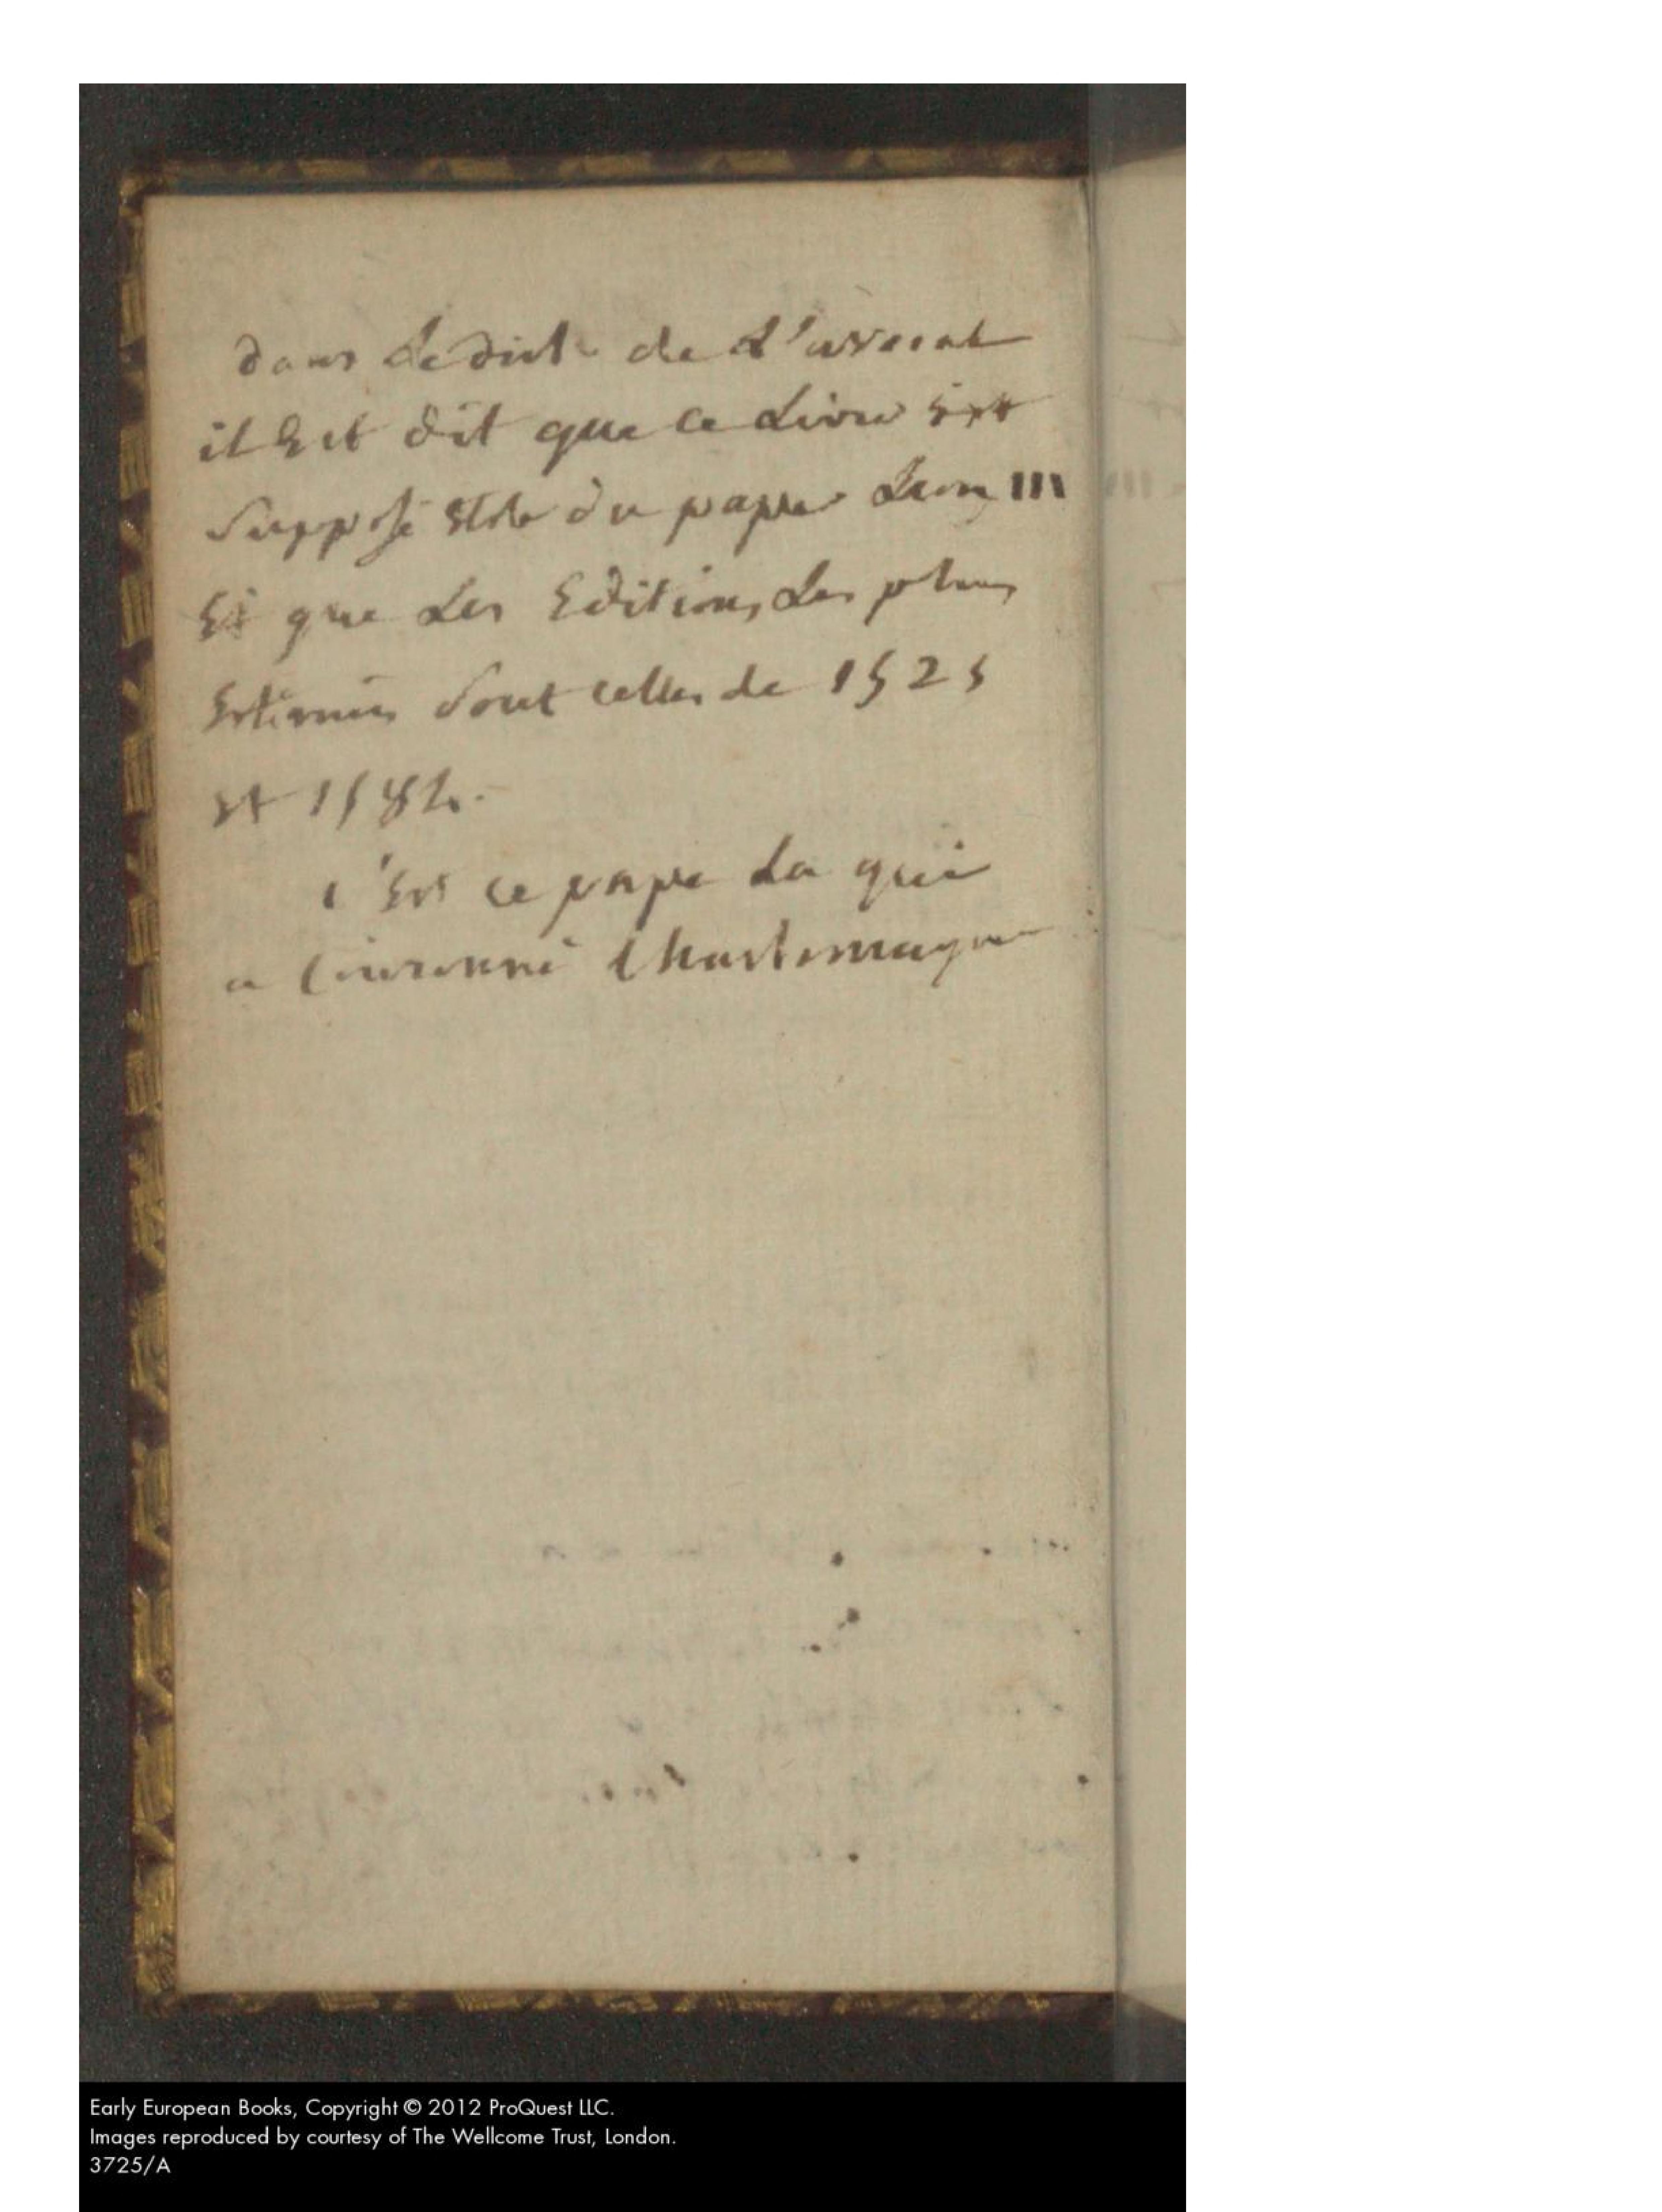 dans Le dict de L'avocat
il Est dit que ce Livre Est
Supposé Etre du pape Leon III
Et que Les Editions Les plus
Estimées Sont celles de 1525
et 1584.
c'Est ce pape La qui
a Couronné Charlemagne
Early European Books, Copyright © 2012 ProQuest LLC.
Images reproduced by courtesy of The Wellcome Trust, London.
3725/A